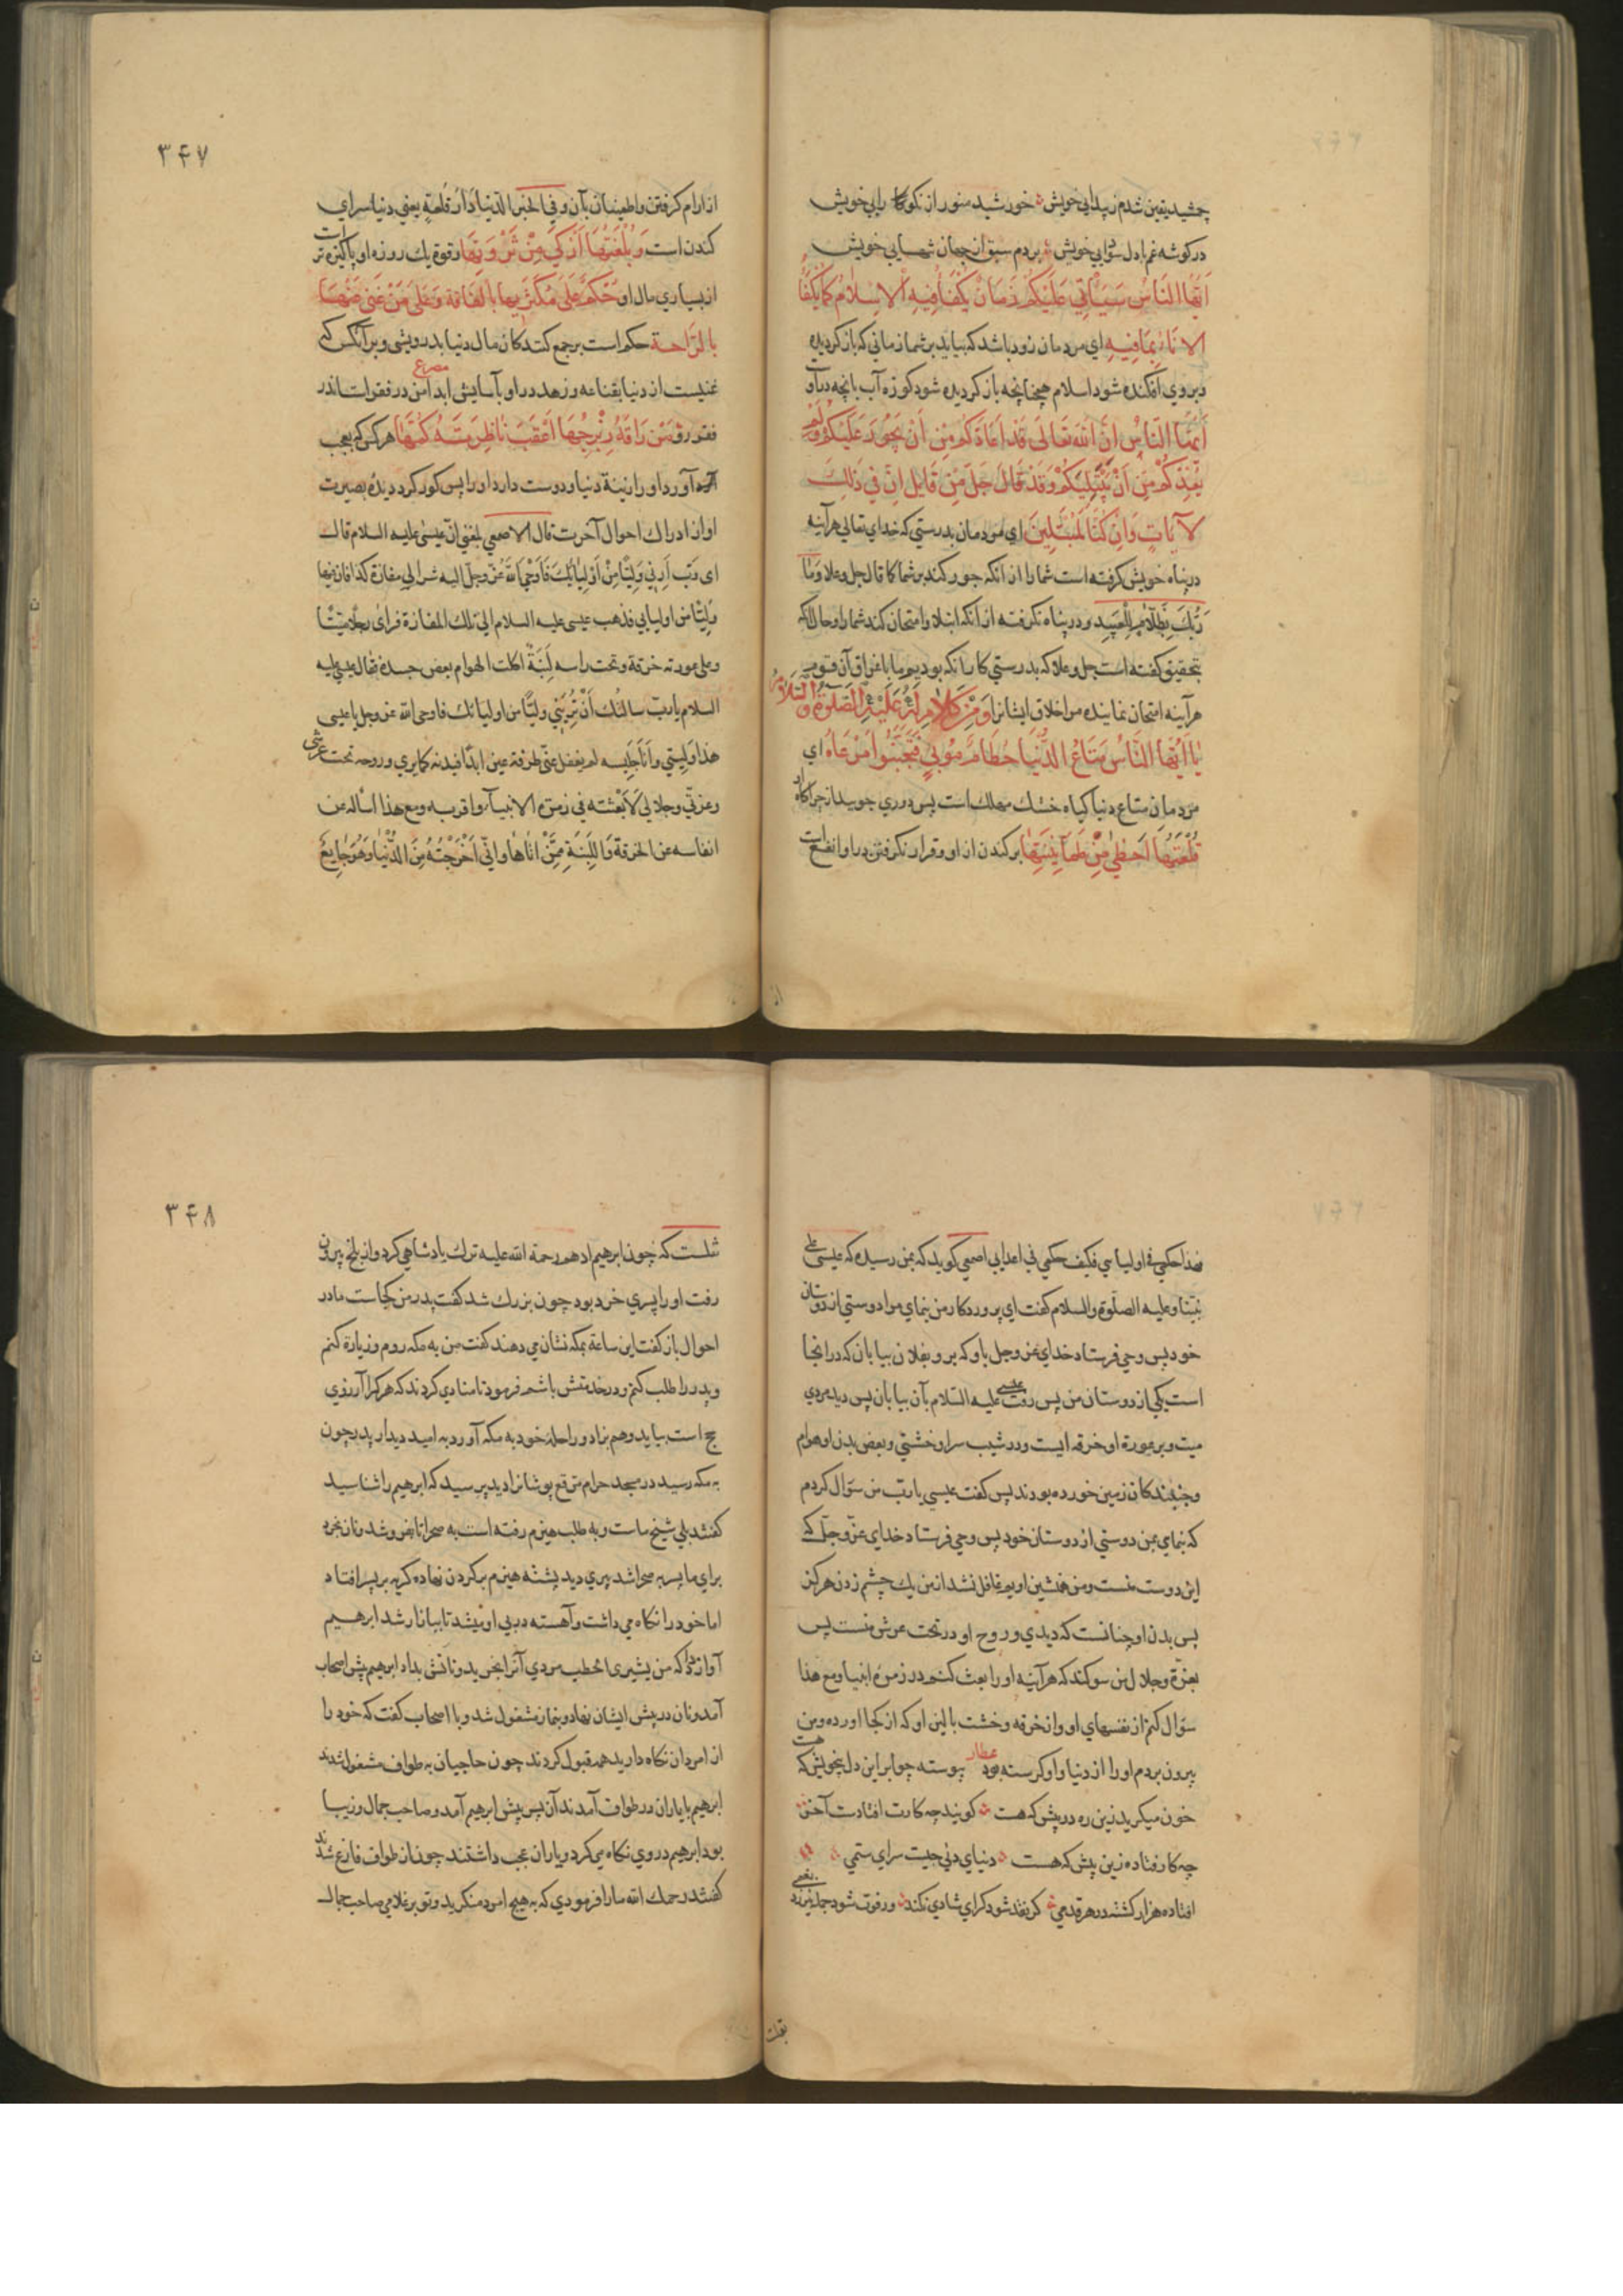 جمشید یقین شدم ز پیدایی خویش خورشید منور از نکوکار رایی خویش
در کوشه غم با دل سودایی خویش بردم سبق از جهان شهایی خویش
اَیُّهَا النَّاسُ سَیَأْتِی عَلَیْکُمْ زَمَانٌ یُکْفَأُ فِیهِ الْاِسْلَامُ کَمَا یُکْفَأُ
الْاِنَاءُ بِمَا فِیهِ ای مردمان زود باشد که بیاید بر شما زمانی که باز کردیده
و بر روی افکنده شود اسلام همچنانچه باز کردیده شود کوزه آب بانچه در او
اَیُّهَا النَّاسُ اِنَّ اللّهَ تَعَالَی قَدْ اَعَاذَکُمْ مِنْ اَنْ یَجُورَ عَلَیْکُمْ وَلَمْ
یُعِذْکُمْ مِنْ اَنْ یَبْتَلِیَکُمْ وَقَدْ قَالَ جَلَّ مِنْ قَایِلٍ اِنَّ فِی ذَلِکَ
لَآیَاتٍ وَاِنْ کُنَّا لَمُبْتَلِینَ ای مردمان بدرستی که خدای تعالی هرآینه
در پناه خویش کرفته است شما را از آنکه جور کند بر شما کما قال جل و علا وَمَا
رَبُّکَ بِظَلَّامٍ لِلْعَبِیدِ و در پناه نکرفته از آنکه ابتلا و امتحان کند شما را و حال آنکه
بتحقیق کفته است جل و علا که بدرستی کار آنکه بودیم ما با غراق آن قوم
هرآینه امتحان نماینده مر اخلاق ایشانرا وَمِنْ کَلَامٍ لَهُ عَلَیْهِ الصَّلَوةُ وَالسَّلَامُ
یَا اَیُّهَا النَّاسُ مَتَاعُ الدُّنْیَا حُطَامٌ مُوبِئٌ فَتَجَنَّبُوا مَرْعَاهُ ای
مردمان متاع دنیا کیاه خشک مهلک است پس دوری جویید از چراکاه او
قُلْعَتُهَا اَحْظَی مِنْ طُمَأْنِینَتِهَا برکندن از او و قرار نکرفتن در او انفع است
۳۴۷
از ارام کرفتن و اطمینان بآن و فی الخبر الدّنیا دَارُ قُلعَةٍ یعنی دنیا سرای
کندن است وَبُلْغَتُهَا اَزْکَی مِنْ ثَرْوَتِهَا و قوة یک روزه او پاکیزه تر است
از بسیاری مال او حُکِمَ عَلَی مُکْثِرٍ بِهَا بِالْفَاقَةِ وَعَلَی مَنْ غَنِیَ عَنْهَا
بِالرَّاحَةِ حکم است بر جمع کنندکان مال دنیا بدرویشی و بر آنکس که
غنیست از دنیا بقناعه و زهد در او بآسایش ابدا مصراع امن در فقر است اندر
فقر رو مَنْ رَاقَهُ زِبْرِجُهَا اَعْقَبَ نَاظِرَیْهِ کَمَهًا هر کس که بعجب
آورد او را زینة دنیا و دوست دارد او را پس کور کرد دیده بصیرت
او از ادراک احوال آخرت قال الاصمعی بلغنی انّ عیسی علیه السلام قال
ای رَبِّ اَرِنی وَلِیًّا مِنْ اَوْلِیَائِکَ فَاَوْحَی اللّهُ عَزَّ وجلّ الیه سر الی مفازة کذا فان فیها
وَلِیًّا من اولیایی فذهب عیسی علیه السلام الی تلک المفازة فرای رجلا مَیِّتًا
و علی عورته خرقة و تحت راسه لَبِنَةٌ اکلت الهوام بعض جسده فقال عیسی علیه
السلام یا رب سالتُک اَنْ تُرِیَنِی ولیًّا من اولیائک فاوحی اللّه عز و جل یا عیسی
هذا وَلِیّی و اَنَا جَلِیسه لم یغفل عنّی طرفة عین ابدًا فبدنه کما تری و روحه تحت عرشی
و عزتی و جلالی لَاَبْعَثَنّه فی زمرة الانبیاء و اقربه و مع هذا اسأله عن
انفاسه عن الخرقة وَاللَّبِنَةِ مِمَّنْ اَتَاهَا و انّی اَخْرَجْتُهُ مِنَ الدُّنْیَا وَهُوَ جَایِعٌ
هذا حکمی فی اولیایی فکیف حکمی فی اعدایی اصمعی کوید که بمن رسیده که عیسی علی
نبیّنا و علیه الصلوة و السلام کفت ای پروردکار من بنمای مرا دوستی از دوستان
خود پس وحی فرستاد خدای عز و جل باو که برو بفلان بیابان که در آنجا
است یکی از دوستان من پس رفت عیسی علیه السلام بآن بیابان پس دید مردی
میت و بر عورة او خرقه ایست و در شیب سر او خشتی و بعض بدن او هوام
و جنبندکان زمین خورده بودند پس کفت عیسی یا ربّ من سؤال کردم
که بنمای بمن دوستی از دوستان خود پس وحی فرستاد خدای عزّ و جلّ که
این دوست منست و من همنشین اویم غافل نشد از من یک چشم زدن هرکز
پس بدن او چنانست که دیدی و روح او در تحت عرش منست پس
بعزة و جلال من سوکند که هرآینه او را بعث کنم در زمره انبیا و مع هذا
سؤال کنم از نفسهای او و از خرقه و خشت بالین او که از کجا اورده و من
بیرون بردم او را از دنیا و او کرسنه بود عطار پیوسته چو ابر این دل بیخویش که هست
خون میکرید زین ره در پیش که هست کویند چه کارت افتادت آخر
چه کار فتاده زین پیش که هست دنیای دنی چیست سرای ستمی
افتاده هزار کشته در هر قدمی کر نقد شود کرای شادی نکند ور فوت شود جمله نیرزد بغمی
نقلست
۳۴۸
نقلست که چون ابرهیم ادهم رحمة اللّه علیه ترک پادشاهی کرد و از بلخ بیرون
رفت او را پسری خرد بود چون بزرک شد کفت پدر من کجاست مادر
احوال باز کفت این ساعة بمکه نشان می دهند کفت من به مکه روم و زیارة کنم
و پدر را طلب کنم و در خدمتش باشم فرمود تا منادی کردند که هر کرا آرزوی
حج است بیاید و هم بزاد و راحله خود به مکه آورد به امید دیدار پدر چون
به مکه رسید در مسجد حرام مرقع پوشانرا دید پرسید که ابرهیم را شناسید
کفتند بلی شیخ ماست و به طلب هیزم رفته است به صحرا تا بفروشد و نان بخرد
برای ما پسر به صحرا شد پیری دید پشته هیزم بر کردن نهاده کریه بر پسر افتاد
اما خود را نکاه می داشت و آهسته در پی او میشد تا ببازار شد ابرهیم
آواز داد که من یشتری الحطب مردی آنرا بخرید و نانش بداد ابرهیم پیش اصحاب
آمد و نان در پیش ایشان نهاد و بنماز مشغول شد و با اصحاب کفت که خود را
از امردان نکاه دارید همه قبول کردند چون حاجیان به طواف مشغول شدند
ابرهیم با یاران در طواف آمدند آن پس پیش ابرهیم آمد و صاحب جمال و زیبا
بود ابرهیم در وی نکاه می کرد و یاران عجب داشتند چون از طواف فارغ شدند
کفتند رحمک اللّه ما را فرمودی که به هیچ امرد منکرید و تو بر غلامی صاحب جمال